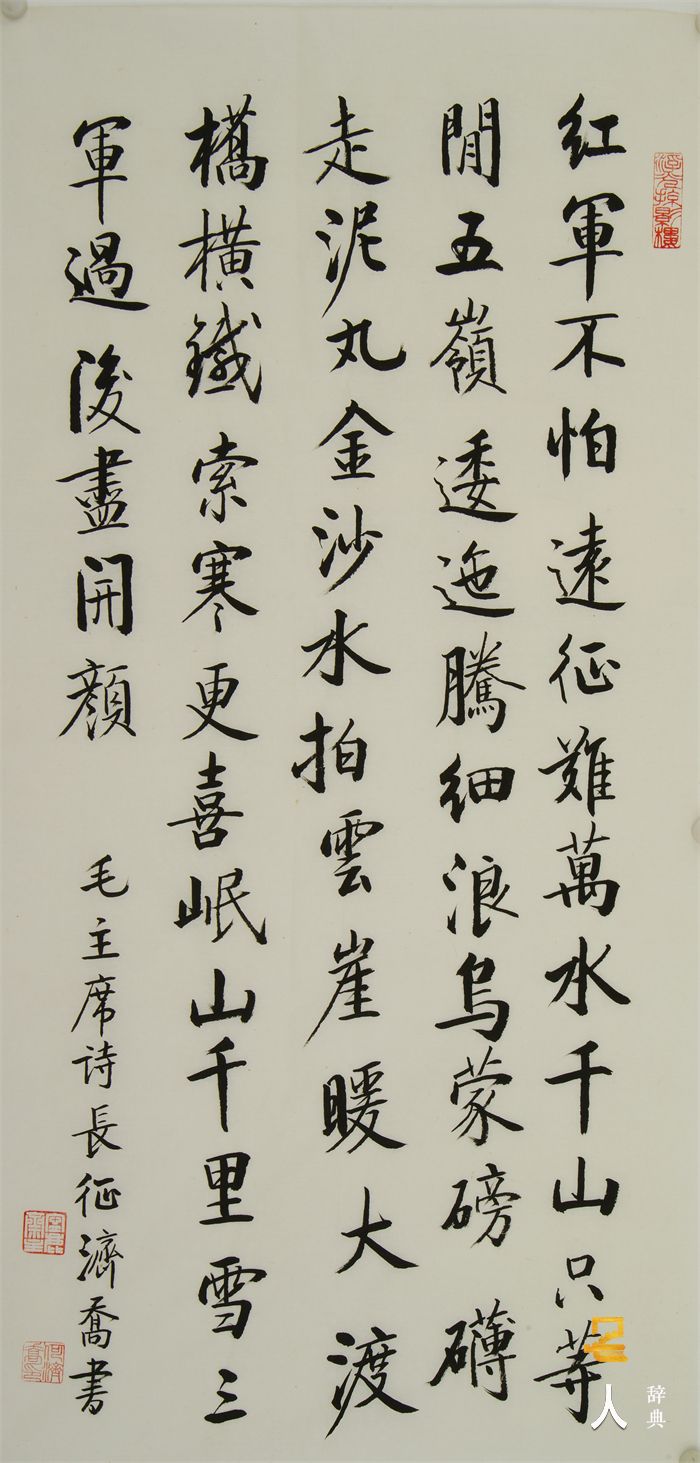 紅軍不怕遠征難萬水千山只等
閒五嶺逶迤騰細浪烏蒙磅礴
走泥丸金沙水拍雲崖暖大渡
橋橫鐵索寒更喜岷山千里雪三
軍過後盡開顏
毛主席诗長征濟喬書
人
辞典